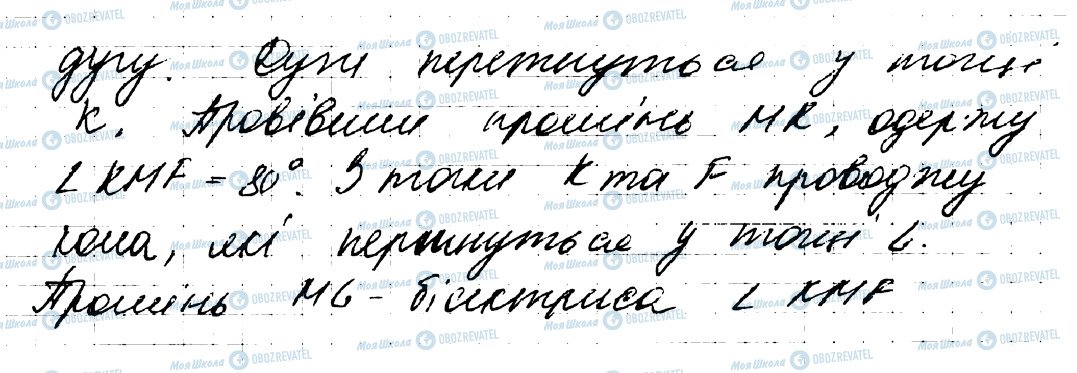 дугу. Дуги перетнуться у точці
К. Провівши промінь МК, одержу
∠ КMF = 80°. З точки К та F проводжу
кола, які перетнуться у точці G.
Промінь MG - бісектриса ∠ KMF